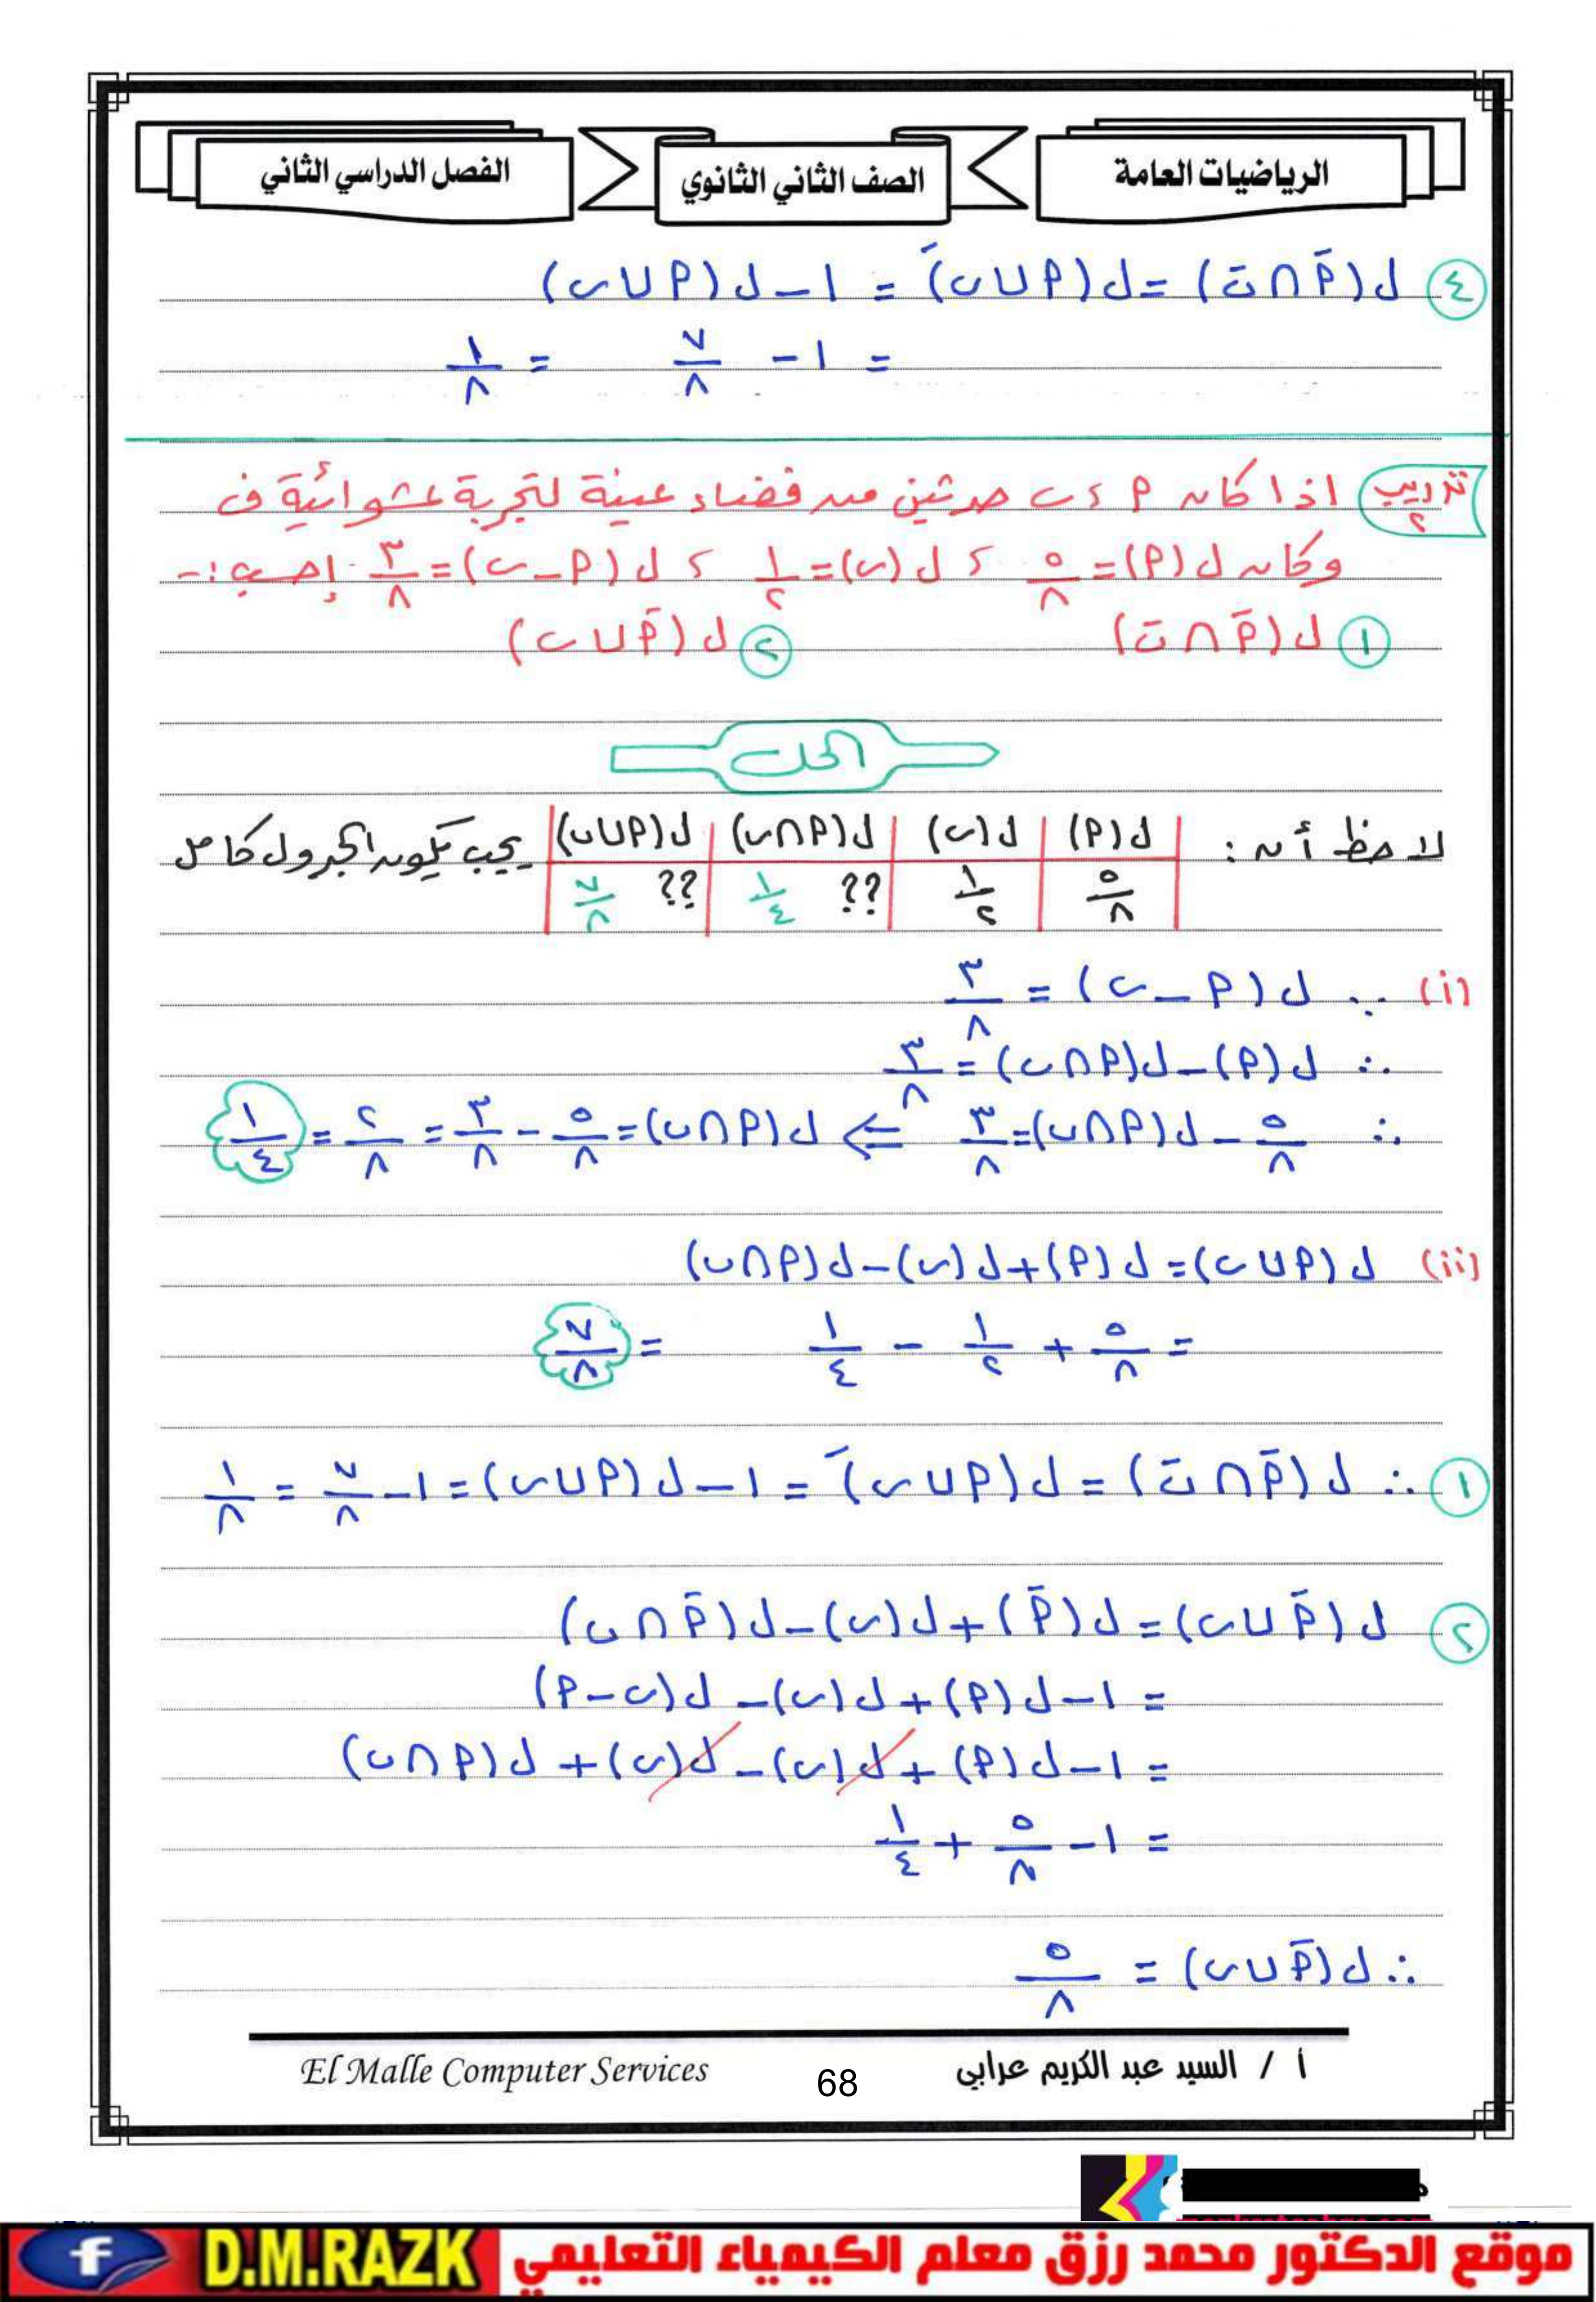 الرياضيات العامة
الصف الثاني الثانوي
الفصل الدراسي الثاني
④ ل(اَ ∩ بَ) = ل(ا ∪ ب)َ = ١ − ل(ا ∪ ب)
= ١ − ٧/٨ = ١/٨
تدريب ٢ اذا كان ا ، ب حدثين من فضاء عينة لتجربة عشوائية ف
وكان ل(ا) = ٥/٨ ، ل(ب) = ١/٢ ، ل(ا − ب) = ٣/٨ إحسب :-
① ل(اَ ∩ بَ) ② ل(اَ ∪ ب)
الحل
لاحظ أن : ل(ا) | ل(ب) | ل(ا∩ب) | ل(ا∪ب) يجب يكون الجدول كامل
٥/٨ | ١/٢ | ?? ١/٤ | ?? ٧/٨
(i) ∵ ل(ا − ب) = ٣/٨
∴ ل(ا) − ل(ا∩ب) = ٣/٨
∴ ٥/٨ − ل(ا∩ب) = ٣/٨ ⇐ ل(ا∩ب) = ٥/٨ − ٣/٨ = ٢/٨ = ١/٤
(ii) ل(ا∪ب) = ل(ا) + ل(ب) − ل(ا∩ب)
= ٥/٨ + ١/٢ − ١/٤ = ٧/٨
① ∴ ل(اَ ∩ بَ) = ل(ا ∪ ب)َ = ١ − ل(ا∪ب) = ١ − ٧/٨ = ١/٨
② ل(اَ ∪ ب) = ل(اَ) + ل(ب) − ل(اَ ∩ ب)
= ١ − ل(ا) + ل(ب) − ل(ب − ا)
= ١ − ل(ا) + ل(ب) − ل(ب) + ل(ا∩ب)
= ١ − ٥/٨ + ١/٤
∴ ل(اَ ∪ ب) = ٥/٨
أ / السيد عبد الكريم عرابي
68
El Malle Computer Services
موقع الدكتور محمد رزق معلم الكيمياء التعليمي
D.M.RAZK
f